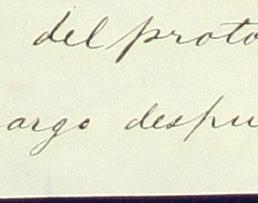 del proto
argo despu